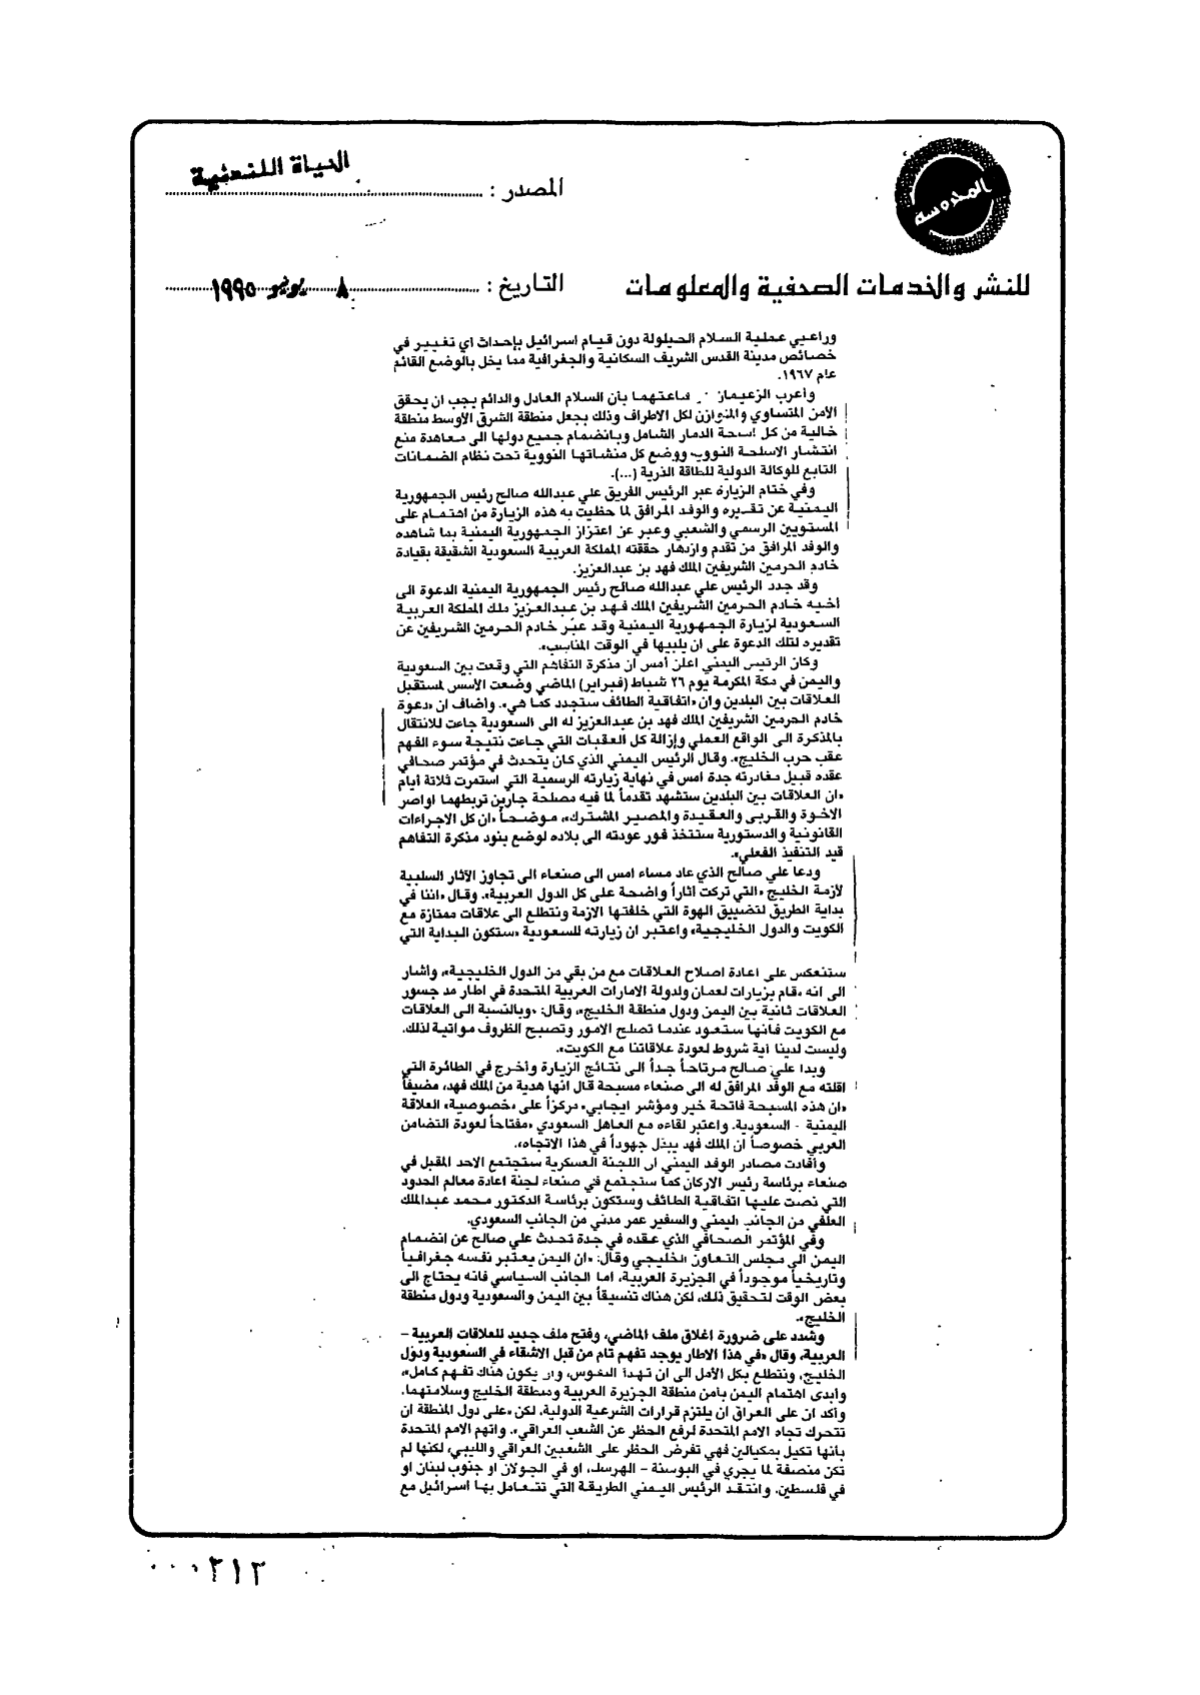 الحياة اللندنية
المصدر :
المحروسة
للنشر والخدمات الصحفية والمعلومات
التاريخ : ٨ يونيو ١٩٩٥
وراعيي عملية السلام الحيلولة دون قيام اسرائيل بإحداث اي تغيير في
خصائص مدينة القدس الشريف السكانية والجغرافية مما يخل بالوضع القائم
عام ١٩٦٧.
وأعرب الزعيمان بأن السلام العادل والدائم يجب ان يحقق
الأمن المتساوي والمتوازن لكل الاطراف وذلك بجعل منطقة الشرق الأوسط منطقة
خالية من كل اسلحة الدمار الشامل وبانضمام جميع دولها الى معاهدة منع
انتشار الاسلحة النووية ووضع كل منشاتها النووية تحت نظام الضمانات
التابع للوكالة الدولية للطاقة الذرية (...).
وفي ختام الزيارة عبر الرئيس الفريق علي عبدالله صالح رئيس الجمهورية
اليمنية عن تقديره والوفد المرافق لما حظيت به هذه الزيارة من اهتمام على
المستويين الرسمي والشعبي وعبر عن اعتزاز الجمهورية اليمنية بما شاهده
والوفد المرافق من تقدم وازدهار حققته المملكة العربية السعودية الشقيقة بقيادة
خادم الحرمين الشريفين الملك فهد بن عبدالعزيز.
وقد جدد الرئيس علي عبدالله صالح رئيس الجمهورية اليمنية الدعوة الى
أخيه خادم الحرمين الشريفين الملك فهد بن عبدالعزيز ملك المملكة العربية
السعودية لزيارة الجمهورية اليمنية وقد عبّر خادم الحرمين الشريفين عن
تقديره لتلك الدعوة على ان يلبيها في الوقت المناسب».
وكان الرئيس اليمني اعلن أمس ان مذكرة التفاهم التي وقعت بين السعودية
واليمن في مكة المكرمة يوم ٢٦ شباط (فبراير) الماضي وضعت الأسس لمستقبل
العلاقات بين البلدين وان «اتفاقية الطائف ستجدد كما هي». وأضاف ان «دعوة
خادم الحرمين الشريفين الملك فهد بن عبدالعزيز له الى السعودية جاءت للانتقال
بالمذكرة الى الواقع العملي وإزالة كل العقبات التي جاءت نتيجة سوء الفهم
عقب حرب الخليج». وقال الرئيس اليمني الذي كان يتحدث في مؤتمر صحافي
عقده قبيل مغادرته جدة امس في نهاية زيارته الرسمية التي استمرت ثلاثة أيام
«ان العلاقات بين البلدين ستشهد تقدماً لما فيه مصلحة جارين تربطهما اواصر
الاخوة والقربى والعقيدة والمصير المشترك»، موضحاً «ان كل الاجراءات
القانونية والدستورية ستتخذ فور عودته الى بلاده لوضع بنود مذكرة التفاهم
قيد التنفيذ الفعلي».
ودعا علي صالح الذي عاد مساء امس الى صنعاء الى تجاوز الآثار السلبية
لأزمة الخليج «التي تركت آثاراً واضحة على كل الدول العربية». وقال «اننا في
بداية الطريق لتضييق الهوة التي خلفتها الازمة ونتطلع الى علاقات ممتازة مع
الكويت والدول الخليجية» واعتبر ان زيارته للسعودية «ستكون البداية التي
ستنعكس على اعادة اصلاح العلاقات مع من بقي من الدول الخليجية»، وأشار
الى انه «قام بزيارات لعمان ولدولة الامارات العربية المتحدة في اطار مد جسور
العلاقات ثانية بين اليمن ودول منطقة الخليج»، وقال: «وبالنسبة الى العلاقات
مع الكويت فانها ستعود عندما تصلح الامور وتصبح الظروف مواتية لذلك.
وليست لدينا أية شروط لعودة علاقاتنا مع الكويت».
وبدا علي صالح مرتاحاً جداً الى نتائج الزيارة وأخرج في الطائرة التي
اقلته مع الوفد المرافق له الى صنعاء مسبحة قال انها هدية من الملك فهد، مضيفاً
«ان هذه المسبحة فاتحة خير ومؤشر ايجابي» مركزاً على «خصوصية» العلاقة
اليمنية - السعودية. واعتبر لقاءه مع العاهل السعودي «مفتاحاً لعودة التضامن
العربي خصوصاً ان الملك فهد يبذل جهوداً في هذا الاتجاه».
وأفادت مصادر الوفد اليمني ان اللجنة العسكرية ستجتمع الاحد المقبل في
صنعاء برئاسة رئيس الاركان كما ستجتمع في صنعاء لجنة اعادة معالم الحدود
التي نصت عليها اتفاقية الطائف وستكون برئاسة الدكتور محمد عبدالملك
العلفي من الجانب اليمني والسفير عمر مدني من الجانب السعودي.
وفي المؤتمر الصحافي الذي عقده في جدة تحدث علي صالح عن انضمام
اليمن الى مجلس التعاون الخليجي وقال: «ان اليمن يعتبر نفسه جغرافياً
وتاريخياً موجوداً في الجزيرة العربية، اما الجانب السياسي فانه يحتاج الى
بعض الوقت لتحقيق ذلك، لكن هناك تنسيقاً بين اليمن والسعودية ودول منطقة
الخليج».
وشدد على ضرورة اغلاق ملف الماضي، وفتح ملف جديد للعلاقات العربية -
العربية، وقال «في هذا الاطار يوجد تفهم تام من قبل الاشقاء في السعودية ودول
الخليج، ونتطلع بكل الأمل الى ان تهدأ النفوس، وان يكون هناك تفهم كامل»،
وأبدى اهتمام اليمن بأمن منطقة الجزيرة العربية ومنطقة الخليج وسلامتهما.
وأكد ان على العراق ان يلتزم قرارات الشرعية الدولية، لكن «على دول المنطقة ان
تتحرك تجاه الامم المتحدة لرفع الحظر عن الشعب العراقي». واتهم الامم المتحدة
بأنها تكيل بمكيالين فهي تفرض الحظر على الشعبين العراقي والليبي، لكنها لم
تكن منصفة لما يجري في البوسنة - الهرسك، او في الجولان او جنوب لبنان او
في فلسطين. وانتقد الرئيس اليمني الطريقة التي تتعامل بها اسرائيل مع
٠٠٠٢١٢